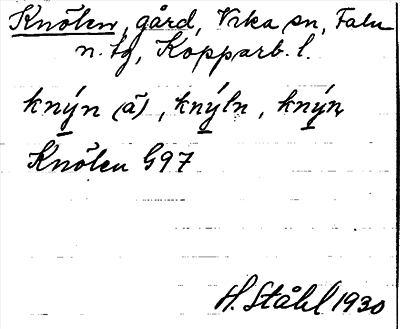 Knölen, gård, Vika sn, Falu
n. tg, Kopparb. l.
knýn (ã), knýln, knýn
Knölen G97
H. Ståhl 1930